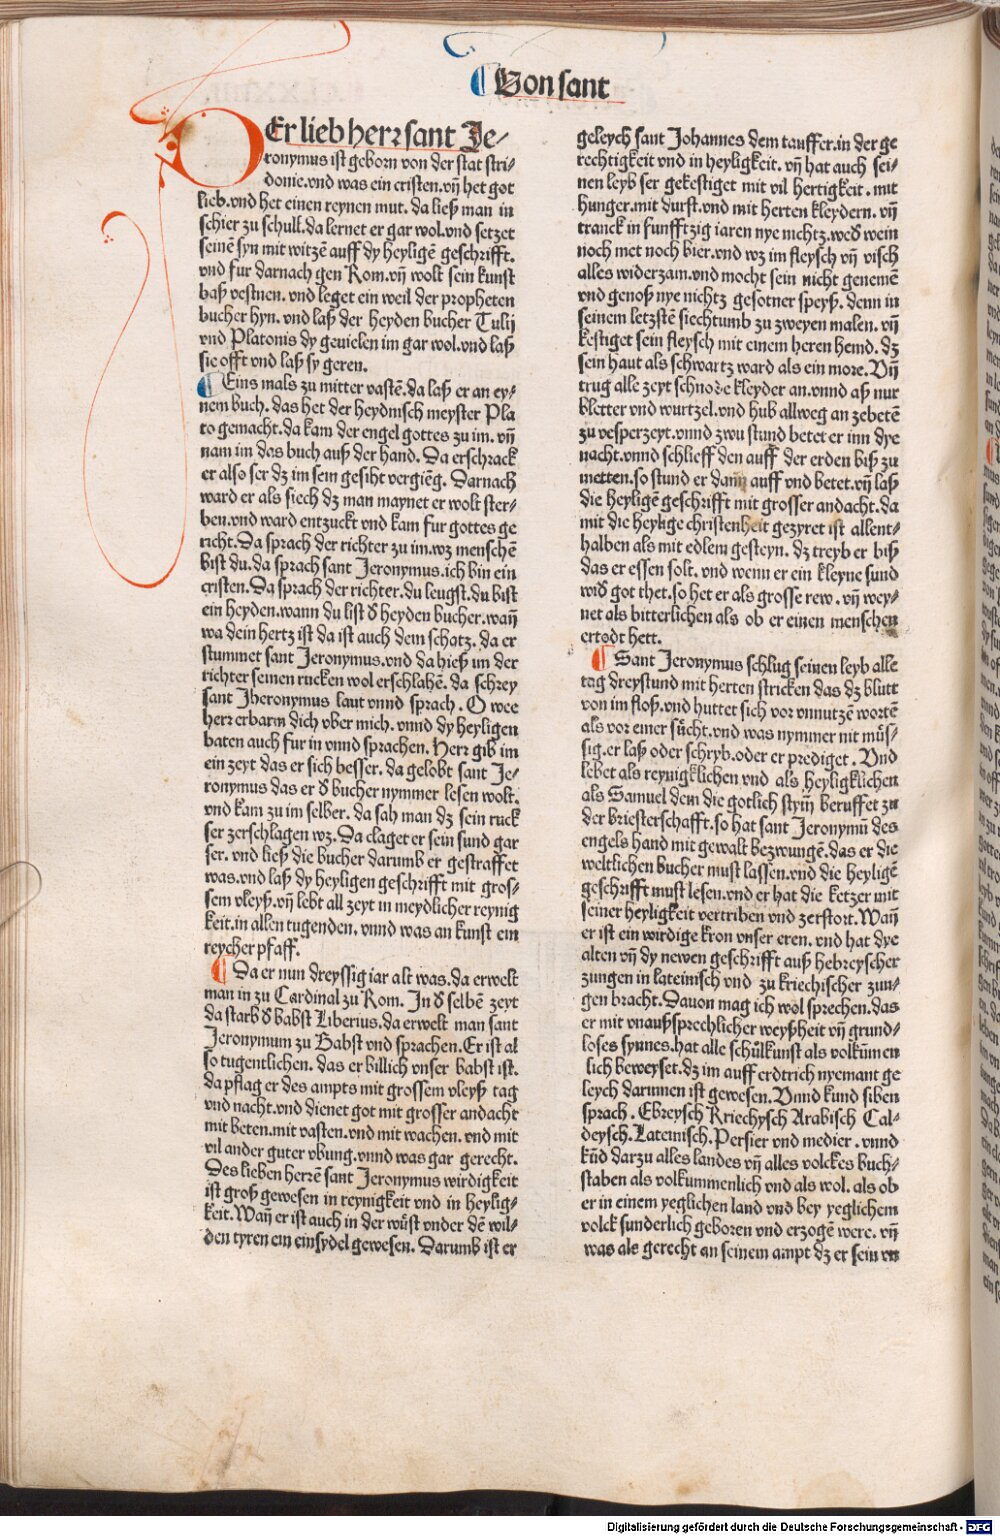 ¶ Von sant
DEr lieb herr sant Je⸗
ronymus ist geborn von der stat stri⸗
donie.vnd was ein cristen.vñ het got
lieb.vnd het einen reynen mut. da ließ man in
schier zu schull.da lernet er gar wol.vnd setzet
seinẽ syn mit witzẽ auff dy heyligẽ geschrifft.
vnd fur darnach gen Rom.vñ wolt sein kunst
baß vestnen. vnd leget ein weil der propheten
bucher hyn. vnd laß der heyden bucher Tulij
vnd Platonis dy geuielen im gar wol.vnd laß
sie offt vnd laß sy geren.
¶ Eins mals zu mitter vastẽ.da laß er an ey⸗
nem buch. das het der heydnisch meyster Pla
to gemacht.da kam der engel gottes zu im. vñ
nam im das buch auß der hand. Da erschrack
er also ser dz im sein gesiht vergiẽg. Darnach
ward er als siech dz man maynet er wolt ster⸗
ben.vnd ward entzuckt vnd kam fur gottes ge
richt.Da sprach der richter zu im.wz menschẽ
bist du.da sprach sant Jeronymus.ich bin ein
cristen.Da sprach der richter.du leugst.du bist
ein heyden.wann du list d̕ heyden bucher.wañ
wa dein hertz ist da ist auch dem schatz. da er
stummet sant Jeronymus.vnd da hieß im der
richter seinen rucken wol erschlahẽ. da schrey
sant Jheronymus laut vnnd sprach. O wee
herr erbarm dich vber mich. vnnd dy heyligen
baten auch fur in vnnd sprachen. Herr gib im
ein zeyt das er sich besser. da gelobt sant Je⸗
ronymus das er d̕ bucher nymmer lesen wolt.
vnd kam zu im selber. da sah man dz sein ruck
ser zerschlagen wz. Da claget er sein sund gar
ser. vnd ließ die bucher darumb er gestraffet
was.vnd laß dy heyligen geschrifft mit gros⸗
sem vleyß.vñ lebt all zeyt in meydlicher reynig
keit.in allen tugenden. vnnd was an kunst ein
reycher pfaff.
¶ Da er nun dreyssig iar alt was.da erwelt
man in zu Cardinal zu Rom. In d̕ selbẽ zeyt
da starb d̕ babst Liberius.da erwelt man sant
Jeronymum zu Babst vnd sprachen.Er ist al
so tugentlichen. das er billich vnser babst ist.
da pflag er des ampts mit grossem vleyß tag
vnd nacht.vnd dienet got mit grosser andacht
mit beten.mit vasten.vnd mit wachen. vnd mit
vil ander guter vbung.vnnd was gar gerecht.
Des lieben herrẽ sant Jeronymus wirdigkeit
ist groß gewesen in reynigkeit vnd in heylig⸗
keit.Wañ er ist auch in der wůst vnder dẽ wil⸗
den tyren ein einsydel gewesen. Darumb ist er
geleych sant Johannes dem tauffer.in der ge
rechtigkeit vnd in heyligkeit. vñ hat auch sei⸗
nen leyb ser gekestiget mit vil hertigkeit. mit
hunger.mit durst.vnd mit herten kleydern. vñ
tranck in funfftzig iaren nye nichtz.wed̕ wein
noch met noch bier.vnd wz im fleysch vñ visch
alles widerzam.vnd mocht sein nicht genemẽ
vnd genoß nye nichtz gesotner speyß. denn in
seinem letzstẽ siechtumb zu zweyen malen. vñ
kestiget sein fleysch mit einem heren hemd. dz
sein haut als schwartz ward als ein more. Vñ
trug alle zeyt schnode kleyder an.vnnd aß nur
bletter vnd wurtzel.vnd hub allweg an zebetẽ
zu vesperzeyt.vnnd zwu stund betet er inn dye
nacht.vnnd schlieff den auff der erden biß zu
metten.so stund er dann auff vnd betet.vñ laß
die heyligẽ geschrifft mit grosser andacht.da
mit die heylige christenheit gezyret ist allent⸗
halben als mit edlem gesteyn. dz treyb er biß
das er essen solt. vnd wenn er ein kleyne sund
wid̕ got thet.so het er als grosse rew. vñ wey⸗
net als bitterlichen als ob er einen menschen
ertodt hett.
¶ Sant Jeronymus schlug seinen leyb alle
tag dreystund mit herten stricken das dz blutt
von im floß.vnd huttet sich vor vnnutzẽ wortẽ
als vor einer sůcht.vnd was nymmer nit můs⸗
sig.er laß oder schryb.oder er prediget. Vnd
lebet als reynigklichen vnd als heyligklichen
als Samuel dem die gotlich stym̃ beruffet zu
der briesterschafft.so hat sant Jeronymũ des
engels hand mit gewalt bezwungẽ.das er die
weltlichen bucher must lassen.vnd die heyligẽ
geschrifft must lesen.vnd er hat die ketzer mit
seiner heyligkeit vertriben vnd zerstort.Wañ
er ist ein wirdige kron vnser eren. vnd hat dye
alten vñ dy newen geschrifft auß hebreyscher
zungen in lateinisch vnd zu kriechischer zun⸗
gen bracht.Dauon mag ich wol sprechen.das
er mit vnaußsprechlicher weyßheit vñ grund⸗
loses synnes.hat alle schůlkunst als volkũmen
lich beweyset.dz im auff erdtrich nyemant ge
leych darinnen ist gewesen. Vnnd kund siben
sprach. Ebreysch Kriechysch Arabisch Cal⸗
deysch.Lateinisch.Persier vnd medier. vnnd
kũd darzu alles landes vñ alles volckes buch⸗
staben als volkummenlich vnd als wol. als ob
er in einem yeglichen land vnd bey yeglichem
volck sunderlich geboren vnd erzogẽ were. vñ
was als gerecht an seinem ampt dz er sein vn
Digitalisierung gefördert durch die Deutsche Forschungsgemeinschaft - DFG